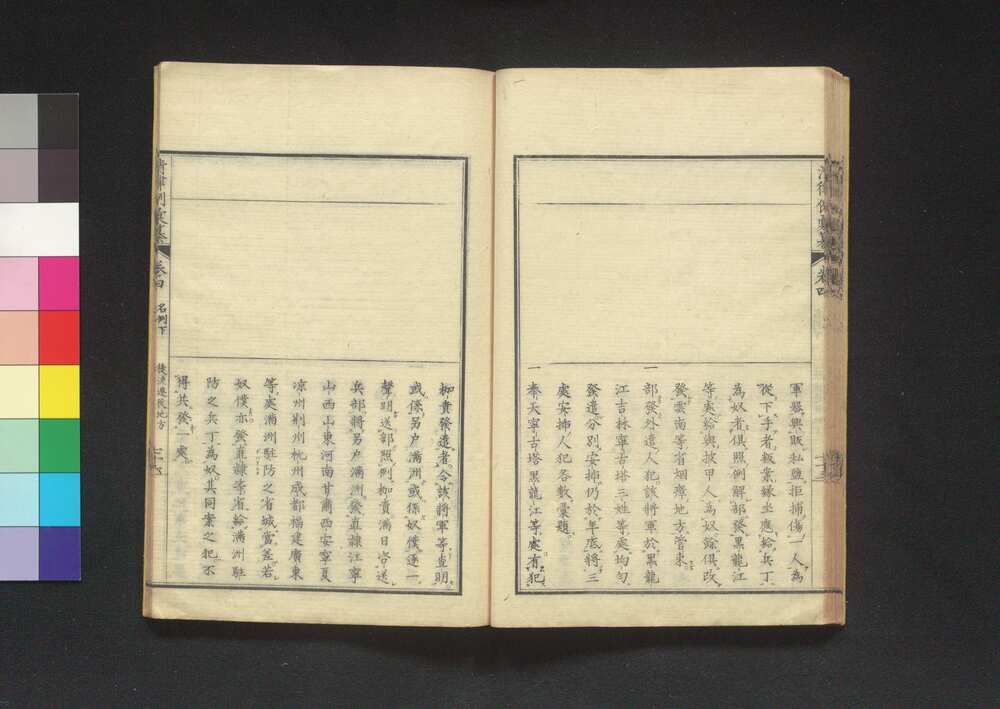 軍器興販私鹽拒捕傷一人為
從下手者叛案緣坐應給兵丁
為奴者俱照例解部發黑龍江
等處給與披甲人為奴餘俱改
發雲南等省烟瘴地方管束
一
部發外遣人犯該將軍於黑龍
江吉林寧古塔三姓等處均勻
發遣分別安揷仍於年底將三
處安揷人犯各數彙題
一
奉天寧古塔黑龍江等處有犯
枷責發遣者令該將軍等查明
或係另户滿洲或係奴僕逐一
聲明送部照例枷責滿日咨送
兵部將另户滿洲發直隸江寧
山西山東河南甘肅西安寧夏
凉州荆州杭州成都福建廣東
等處滿洲駐防之省城當差若
奴僕亦發直隸等省給滿洲駐
防之兵丁為奴其同案之犯不
得共發一處
卷四
名例下
徒流遷徙地方